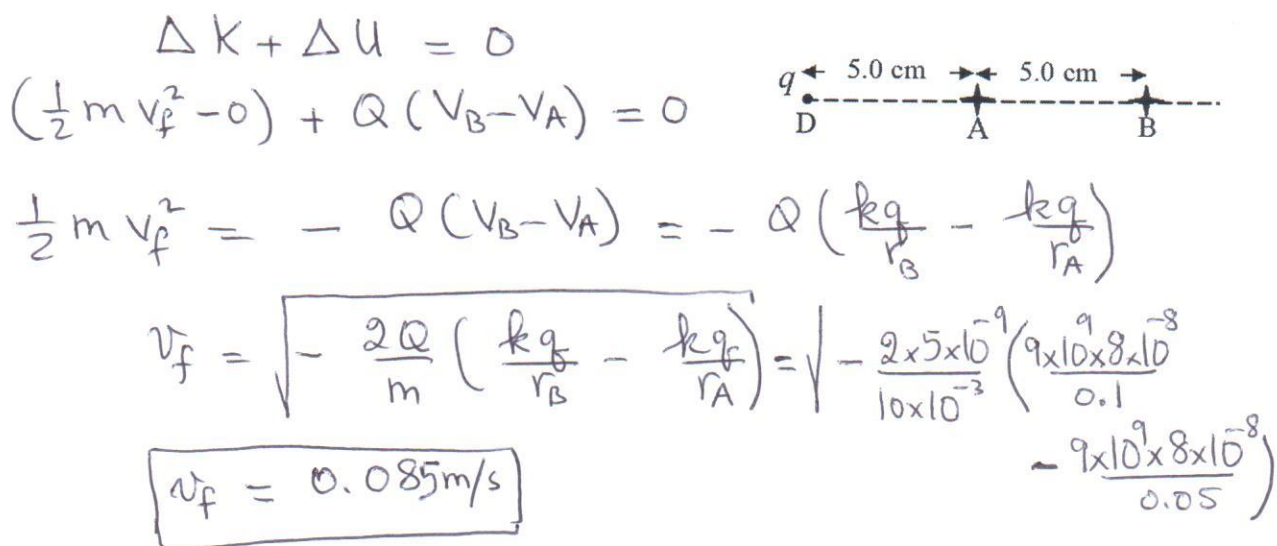 ΔK + ΔU = 0
(½ m v_f² - 0) + Q (V_B - V_A) = 0
q 5.0 cm 5.0 cm
D A B
½ m v_f² = - Q (V_B - V_A) = - Q (kq/r_B - kq/r_A)
v_f = √(- 2Q/m (kq/r_B - kq/r_A)) = √(- 2×5×10⁻⁹/10×10⁻³ (9×10⁹×8×10⁻⁸/0.1
- 9×10⁹×8×10⁻⁸/0.05)
v_f = 0.085 m/s